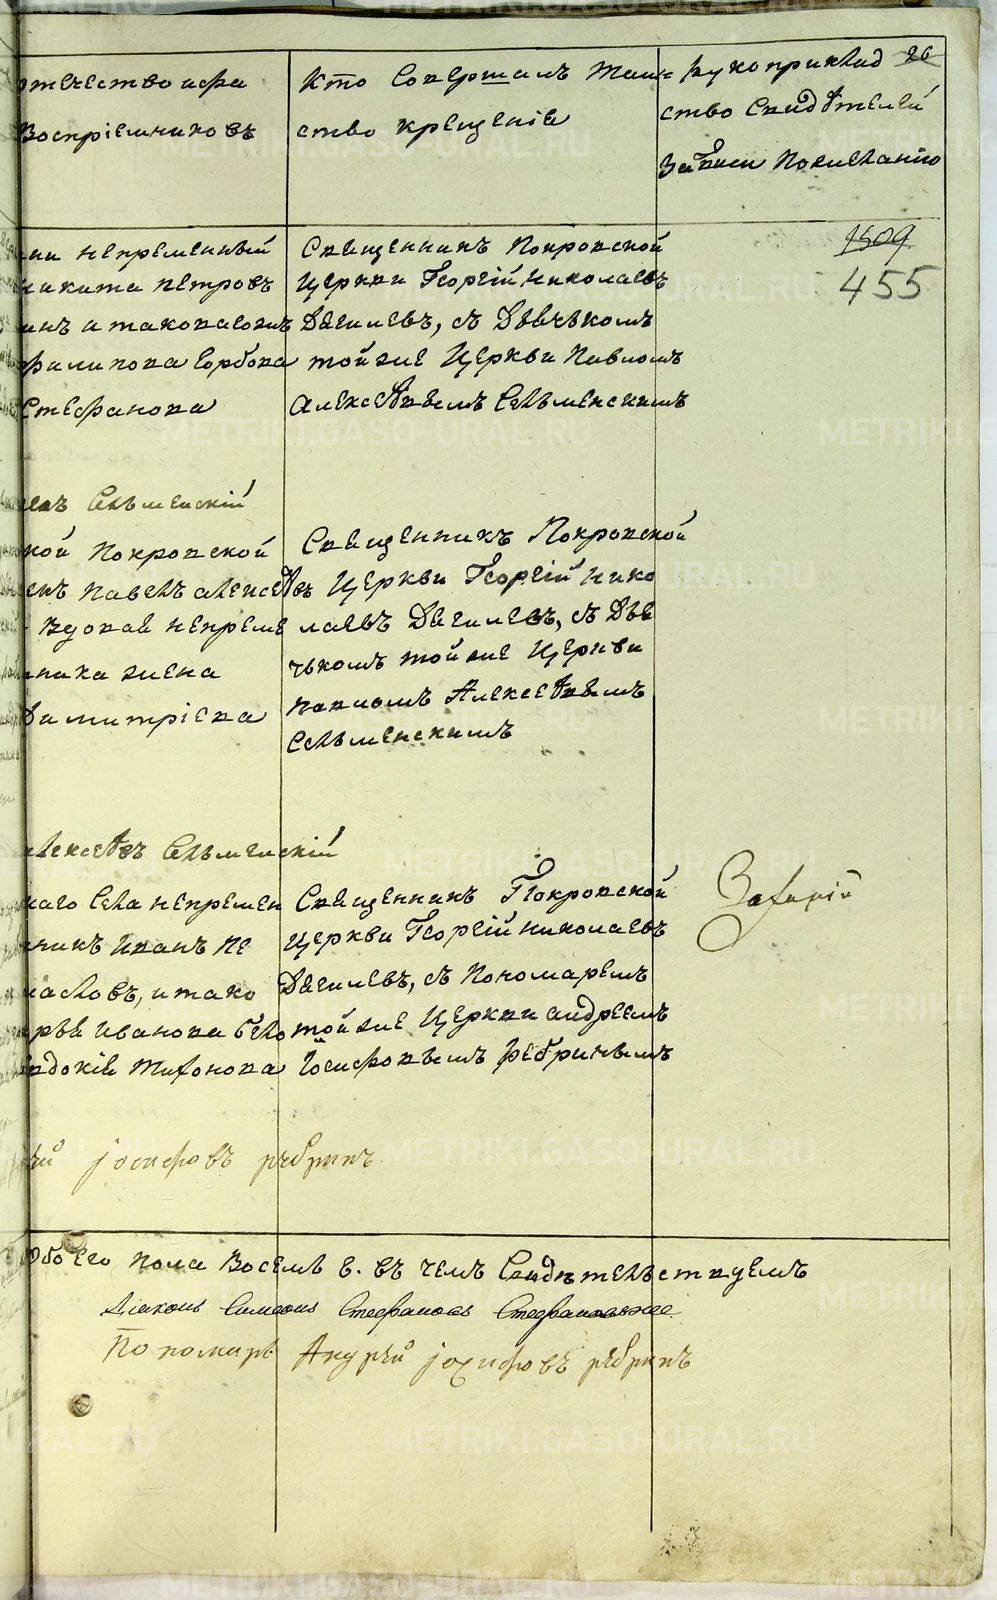 отечество и фа
Воспріемниковъ
Кто Совершалъ Таин=
ство крещеніе
рукоприклад 26
ство Свидѣтелей
Записи По желанію
1509
455
непременный
никита петровъ
и таковаго
филипова горбова
Стефанова
Священникъ Покровской
Церкви Георгій Николаевъ
Дягилевъ, съ Дьячькомъ
той же Церкви Павломъ
Алексѣевымъ Сельменскимъ
Сельменскій
кой Покровской
Павелъ алексѣевъ
Вдовае непреме
ника жена
Димитріева
Священникъ Покровской
Церкви Георгій Нико
лаевъ Дягилевъ, съ Дья
чькомъ той же Церкви
павломъ Алексѣевымъ
Сельменскимъ
алексѣевъ Сельменскій
каго Села непремен
никъ Иванъ Пе
масловъ, и тако
Иванова бело
Евдокіе Тихонова
Священникъ Покровской
Церкви Георгій николаевъ
Дягилевъ, съ Пономаремъ
той же Церкви андреемъ
Іосифовымъ рябринымъ
Захарій
іосифовъ рябринъ
Обоего пола Восемь 8. въ чемъ Свидѣтельствуемъ
Діаконъ Симеонъ Стефановъ
Пономарь Андрѣй іосифовъ рябринъ
METRIKI.GASO-URAL.RU